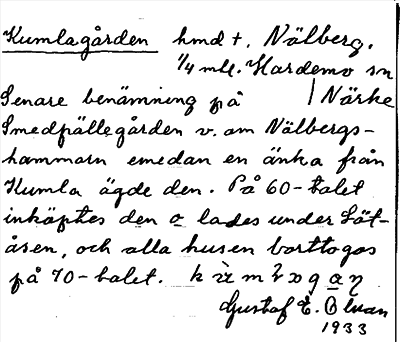 Kumlagården hmd t. Nälberg.
1/4 mtl. Hardemo sn
Senare benämning på | Närke
Smedpällegården v. om Nälbergs-
hammarn emedan en änka från
Kumla ägde den. På 60-talet
inköptes den o lades under Löt-
åsen, och alla husen borttogos
på 70-talet.
Gustaf E.
1933